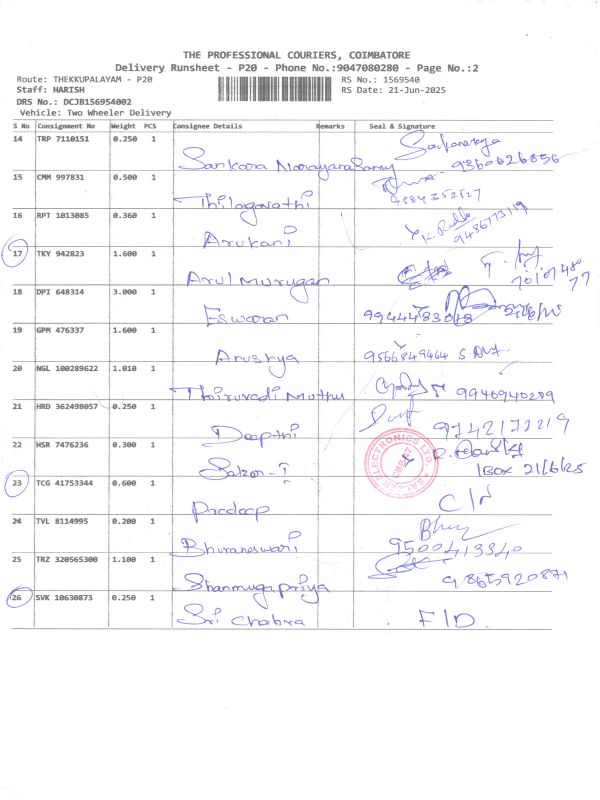 THE PROFESSIONAL COURIERS, COIMBATORE
Delivery Runsheet - P20 - Phone No.:9047080280 - Page No.:2
Route: THEKKUPALAYAM - P20 RS No.: 1569540
Staff: HARISH RS Date: 21-Jun-2025
DRS No.: DCJB156954002
Vehicle: Two Wheeler Delivery
S No Consignment No Weight PCS Consignee Details Remarks Seal & Signature
14 TRP 7110151 0.250 1
Sankara Narayana Samy 9360626856
15 CMM 997831 0.500 1
Thilagavathi
16 RPT 1013085 0.360 1
Arukani
17 TKY 942823 1.600 1
Arul Murugan
18 DPI 648314 3.000 1
Eswaran 9944483048
19 GPM 476337 1.600 1
Anushya 9566849464
20 NGL 100289622 1.010 1
Thiruvadi Muthu 9940940289
21 HRD 362498057 0.250 1
Deepthi
22 HSR 7476236 0.300 1
Salzer-I 1BOX 21/6/25
23 TCG 41753344 0.600 1
Pradeep C/N
24 TVL 8114995 0.200 1
Bhuvaneswari 9500413340
25 TRZ 320565300 1.100 1
Shanmugapriya 9865920871
26 SVK 10630873 0.250 1
Sri Chakra F/D.